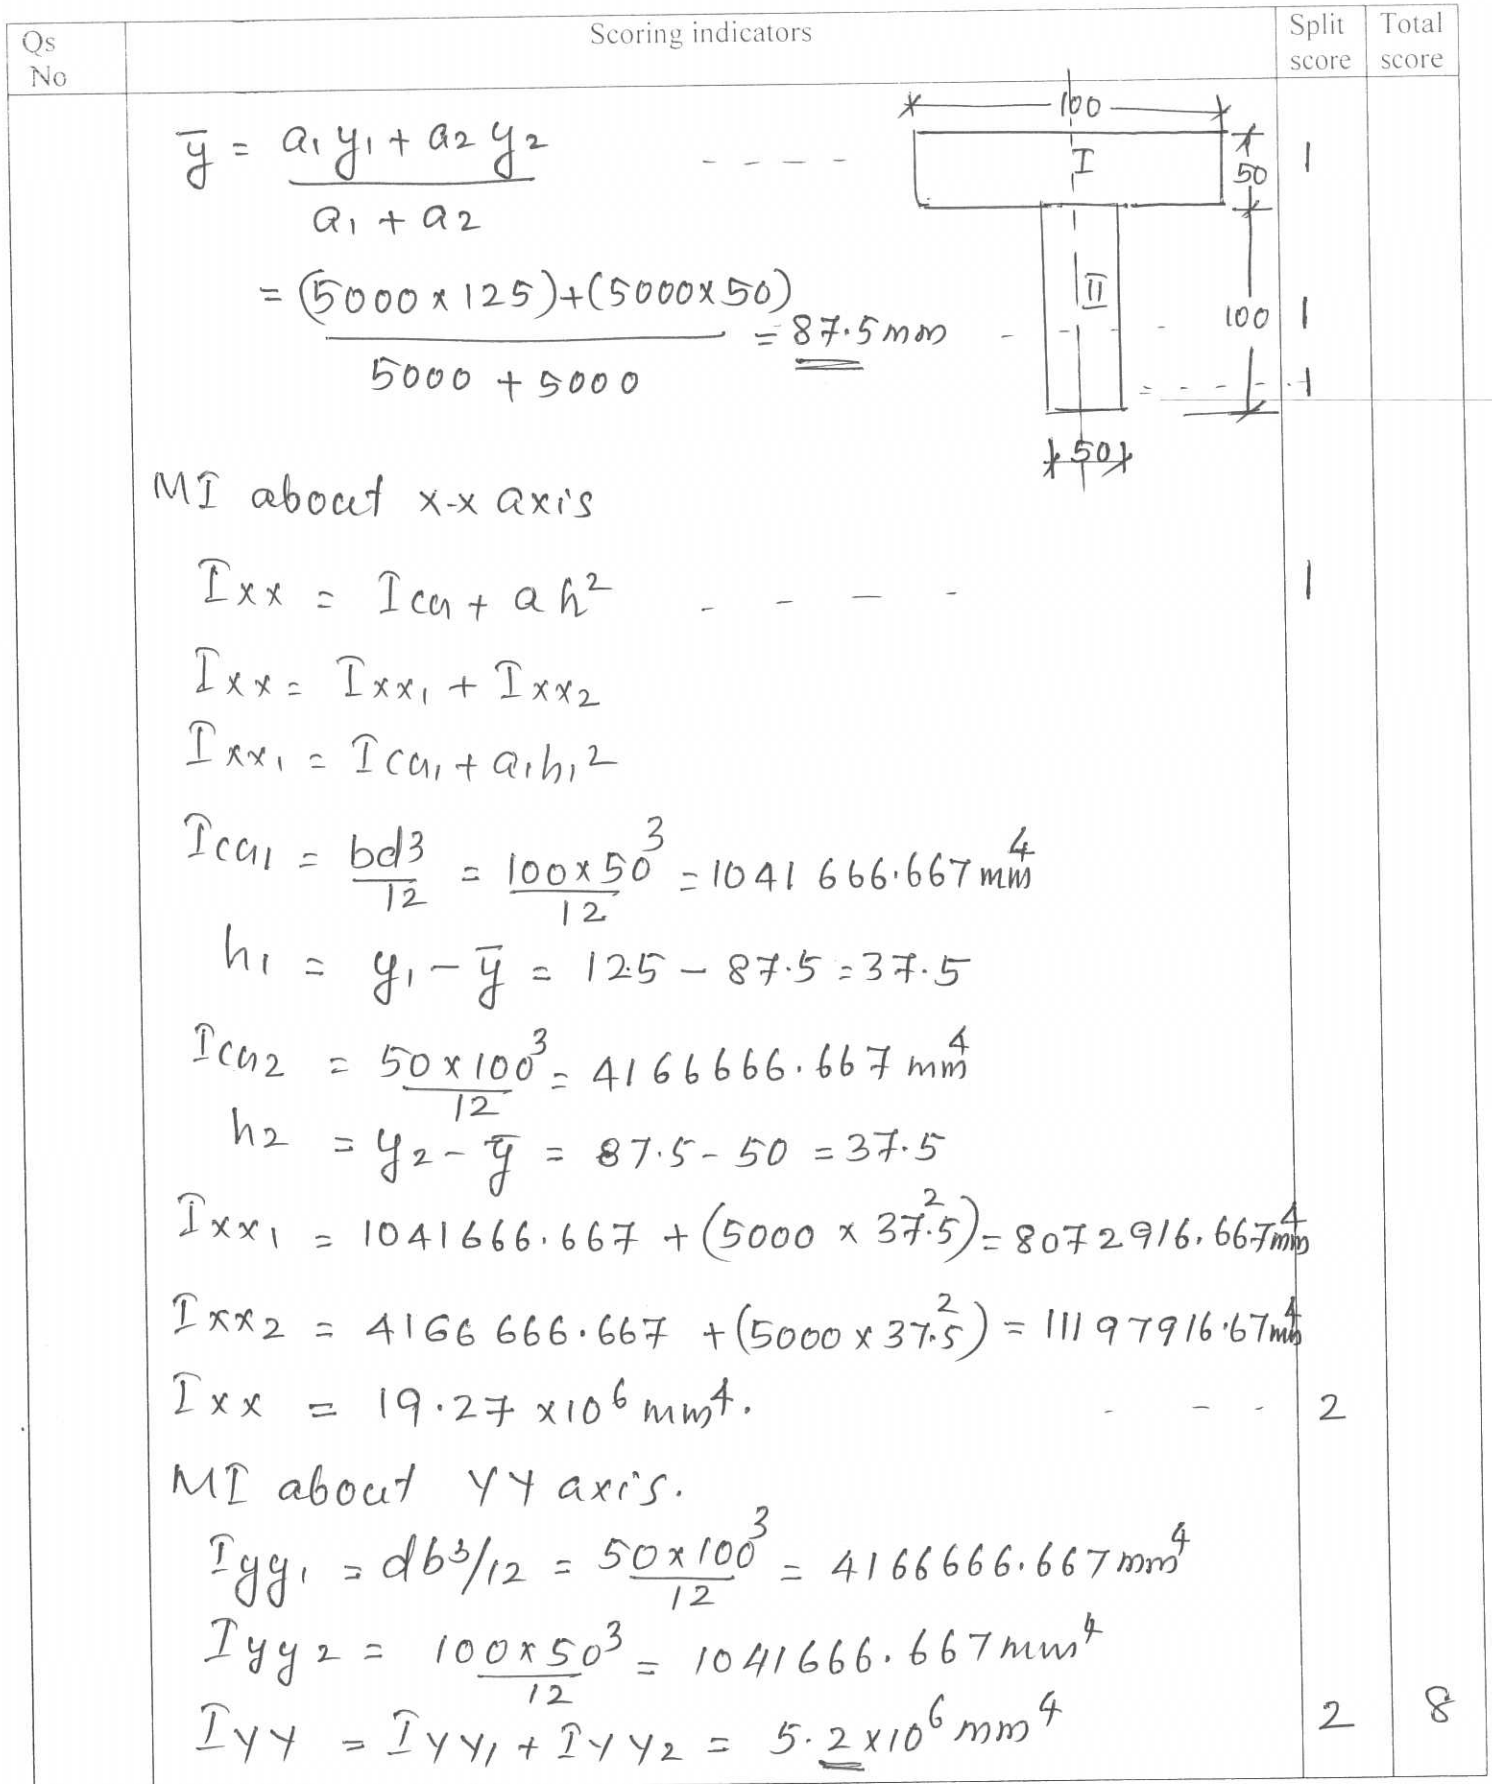 Qs No
Scoring indicators
Split score
Total score
ȳ = a₁y₁ + a₂y₂ / a₁ + a₂ - - - - 1
100
I
50
= (5000 × 125)+(5000×50) / 5000 + 5000 = 87.5 mm - - - 1
II
100
- - - - 1
50
MI about x-x axis
Ixx = ICG + ah² - - - - 1
Ixx = Ixx₁ + Ixx₂
Ixx₁ = ICG₁ + a₁h₁²
ICG₁ = bd³/12 = 100×50³/12 = 1041 666.667 mm⁴
h₁ = y₁ - ȳ = 125 - 87.5 = 37.5
ICG₂ = 50×100³/12 = 4166666.667 mm⁴
h₂ = y₂ - ȳ = 87.5 - 50 = 37.5
Ixx₁ = 1041666.667 + (5000 × 37.5²) = 8072916.667mm⁴
Ixx₂ = 4166 666.667 + (5000 × 37.5²) = 11197916.67mm⁴
Ixx = 19.27 ×10⁶ mm⁴. - - - 2
MI about YY axis.
Iyy₁ = db³/12 = 50×100³/12 = 4166666.667 mm⁴
Iyy₂ = 100×50³/12 = 1041666.667 mm⁴
IYY = IYY₁ + IYY₂ = 5.2×10⁶ mm⁴ 2 8